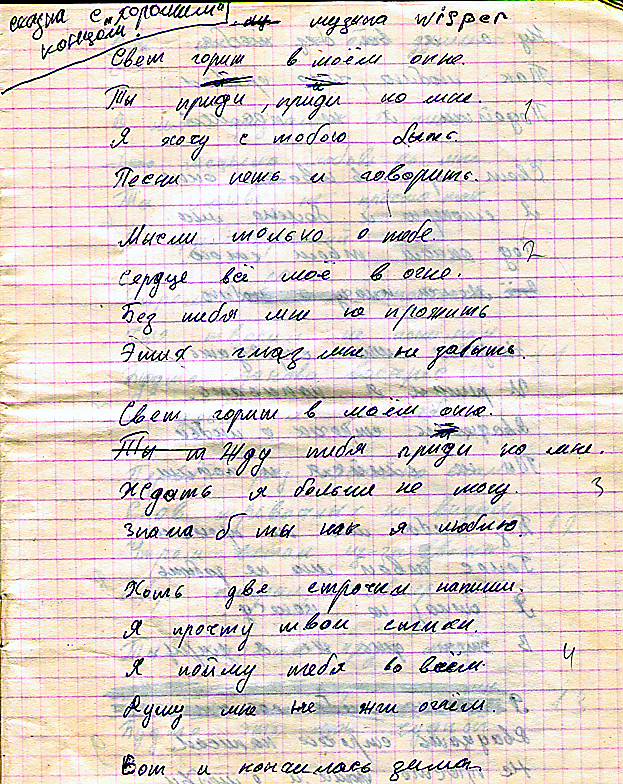 сказка с „хорошим"
концом.
музыка Wisper
Свет горит в моём окне.
Ты приди, приди ко мне.
1
Я хочу с тобою быть.
Песни петь и говорить.
Мысли только о тебе.
2
Сердце всё моё в огне.
Без тебя мне не прожить
Этих глаз мне не забыть.
Свет горит в моём окне.
Ты п Жду тебя приди ко мне.
Ждать я больше не могу.
3
Знала б ты как я люблю.
Хоть две строчки напиши.
Я прочту твои стихи.
4
Я пойму тебя во всём
Душу мне не жги огнём.
Вот и кончилась зима